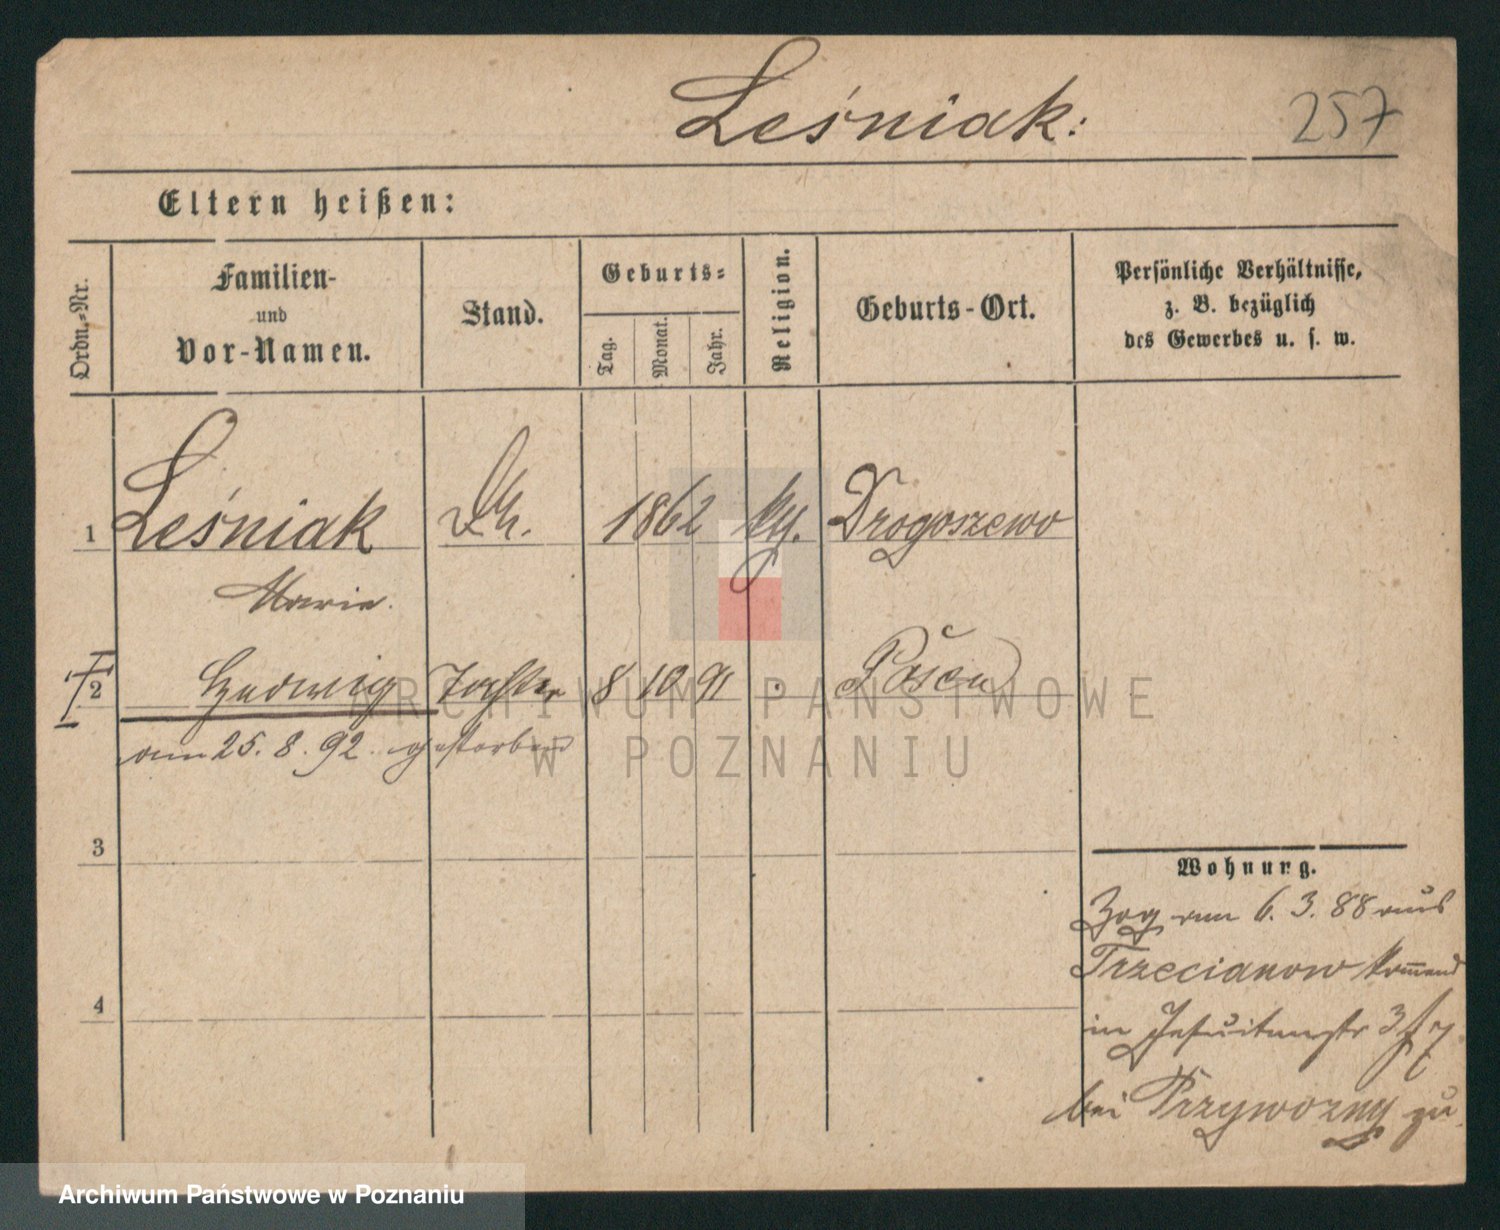 Leśniak:
257
Eltern heißen:
Ordn.-Nr.
Familien-
und
Vor-Namen.
Stand.
Geburts=
Tag.
Monat.
Jahr.
Religion.
Geburts-Ort.
Persönliche Verhältnisse,
z. B. bezüglich
des Gewerbes u. s. w.
1 Leśniak 1862 Drogoszewo
Marie.
2 Hedwig Tochter 8 10 91 Posen
am 25. 8. 92. gestorben
3
4
Wohnung.
Zog am 6. 3. 88 aus
Trzecianow kommend
in Jesuitenstr 3
bei Przywozny zu
ARCHIWUM PAŃSTWOWE
W POZNANIU
Archiwum Państwowe w Poznaniu